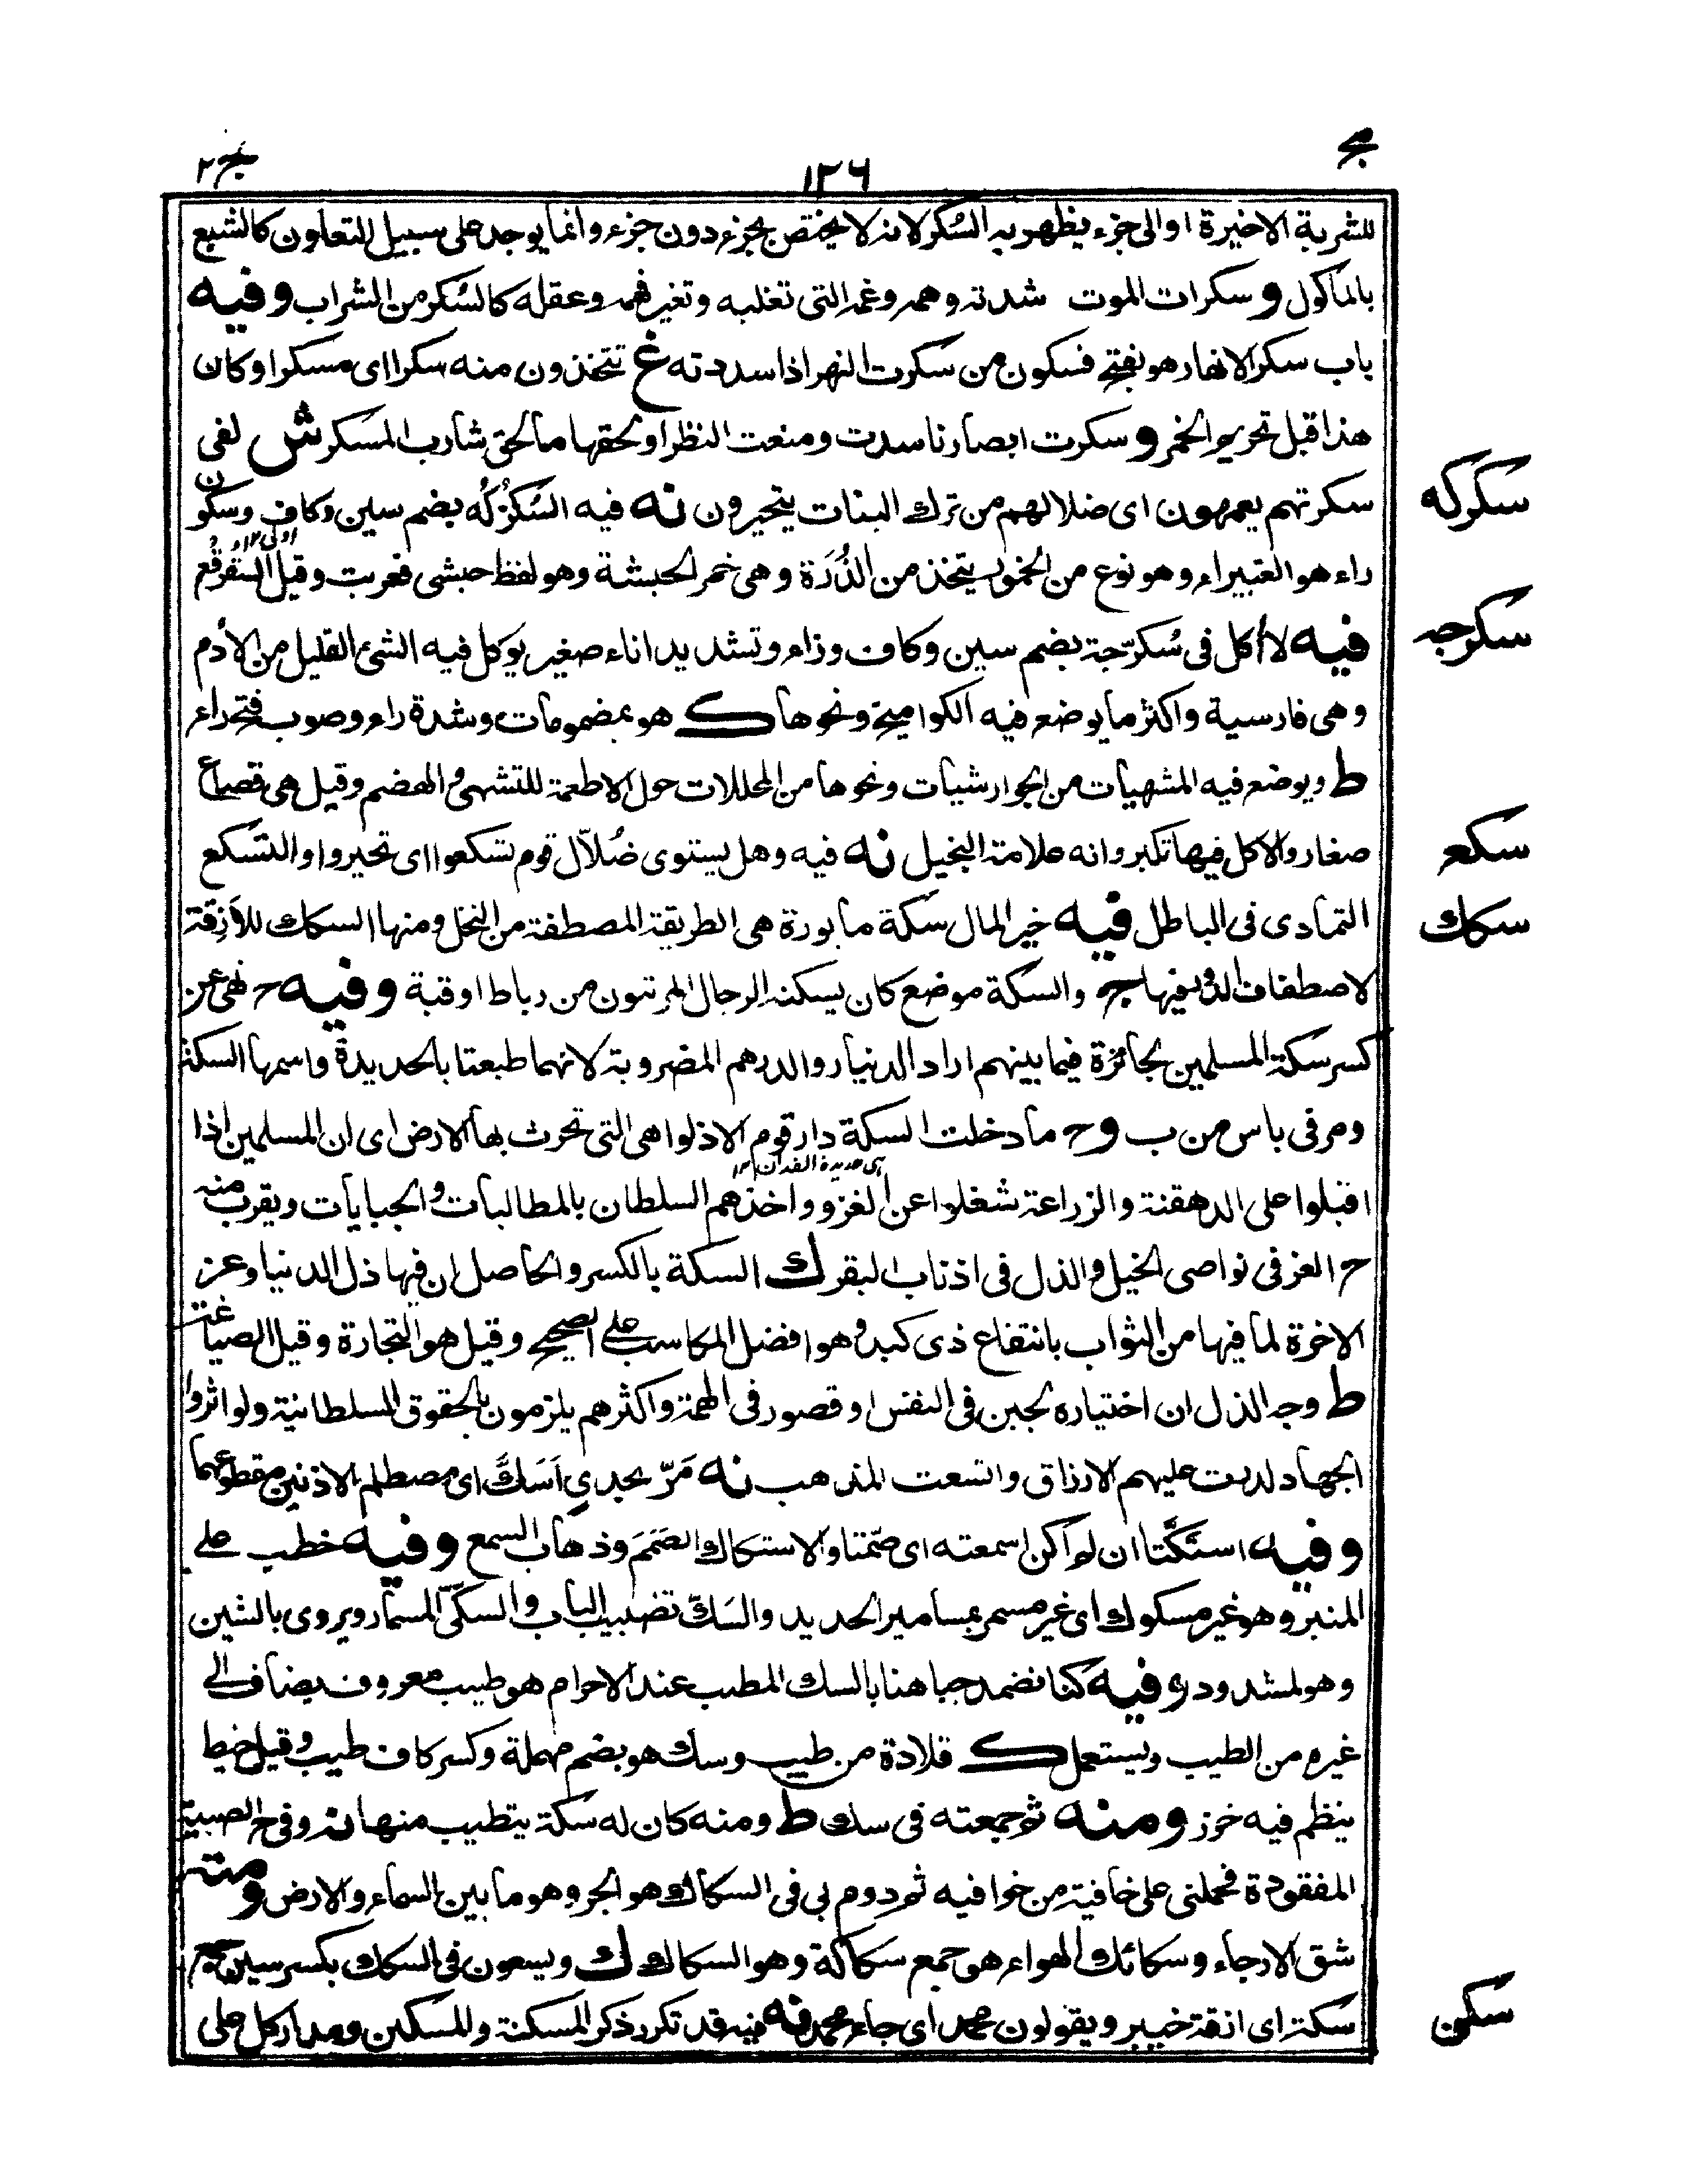 مج
١٢٦
مج ٢
للشربة الاخيرة او الى جزء يظهر به السُكر لانه لا يختص بجزء دون جزء وانما يوجد على سبيل التعاون كالشبع
بالماكول و سكرات الموت شدته وهمه وغمه التى تغلبه وتغير فهمه وعقله كالسُكر من الشراب وفيه
باب سكر الانهار هو بفتح فسكون من سكرت النهر اذا سددته غ تتخذون منه سكرا اى مسكرا وكان
هذا قبل تحريم الخمر و سكرت ابصارنا سدت ومنعت النظر او لحقها ما لحق شارب المسكر ش لفى
سكرتهم يعمهون اى ضلالهم من ترك البنات يتحيرون نه فيه السُكُرْكَه بضم سين وكاف وسكون
سكركه
راء هو الغبيراء وهو نوع من الخمور يتخذ من الذُرَة وهى خمر الحبشة وهو لفظ حبشى فعربت وقيل السقرقع
فيه لا أكل فى سُكرّجة بضم سين وكاف وراء وتشديد اناء صغير يوكل فيه الشئ القليل من الأدم
سكرجه
وهى فارسية واكثر ما يوضع فيه الكواميخ ونحوها ك هو بمضمومات وشدة راء وصوب فتح راء
ط ويوضع فيه المشهيات من الجوارشيات ونحوها من المخللات حول الاطعمة للتشهى والهضم وقيل هى قصاع
صغار والاكل فيها تكبر وانه علامة البخيل نه فيه وهل يستوى ضُلّال قوم تسكعوا اى تحيروا والتسكع
سكع
التمادى فى الباطل فيه خير المال سكة مابورة هى الطريقة المصطفة من النخل ومنها السكك للأَزِقة
سكك
لاصطفاف الدور فيها ج والسكة موضع كان يسكنه الرجال المرتبون من رباط او قبة وفيه ح نهى عن
كسر سكة المسلمين الجائزة فيما بينهم اراد الدنيار والدرهم المضروبة لانهما طبعتا بالحديدة واسمها السكة
ومر فى باس من ب وح ما دخلت السكة دار قوم الا ذلوا هى التى تحرث بها الارض اى ان المسلمين اذا
اى حديدة الفدان ١٢
اقبلوا على الدهقنة والزراعة شغلوا عن الغزو واخذهم السلطان بالمطالبات والجبايات ويقرب منه
ح العز فى نواصى الخيل والذل فى اذناب البقر ك السكة بالكسر والحاصل ان فيها ذل الدنيا وعز
الاخرة لما فيها من الثواب بانتفاع ذى كبد وهو افضل المكاسب على الصحيح وقيل هو التجارة وقيل الصياغة
ط وجه الذل ان اختياره لجبن فى النفس او قصور فى الهمة واكثرهم يلزمون بالحقوق السلطانية ولو اثروا
الجهاد لدرت عليهم الارزاق واتسعت المذهب نه مَرّ بجدي اَسَكّ اى مصطلم الاذنين مقطوعهما
وفيه استكّتا ان لم اكن اسمعته اى صمّتا والاستكاك الصَمَم وذهاب السمع وفيه خطب على
المنبر وهو غير مسكوك اى غير مسمر بمسامير الحديد والسَكّ تضبيب الباب والسكّى المسمار ويروى بالشين
وهو لمشدود وفيه كنا نضمد جباهنا بالسك المطيب عند الاحرام هو طيب معروف يضاف الى
غيره من الطيب ويستعمل ك قلادة من طيب وسك هو بضم مهملة وكسر كاف طيب وقيل خيط
ينظم فيه خرز ومنه ثم جمعته فى سك ط ومنه كان له سكة يتطيب منها نه وفى ح الصبية
المفقودة فحملنى على خافية من خوافيه ثم دوم بى فى السكاك هو الجو وهو ما بين السماء والارض ومنه
شق الارجاء وسكائك الهواء هو جمع سكاكة وهو السكاك ك ويسعون فى السكك بكسر سين جمع
سكة اى ازقة خيبر ويقولون محمد اى جاء محمد نه فيه قد تكرر ذكر المسكنة والمسكين ومدار كل على
سكن